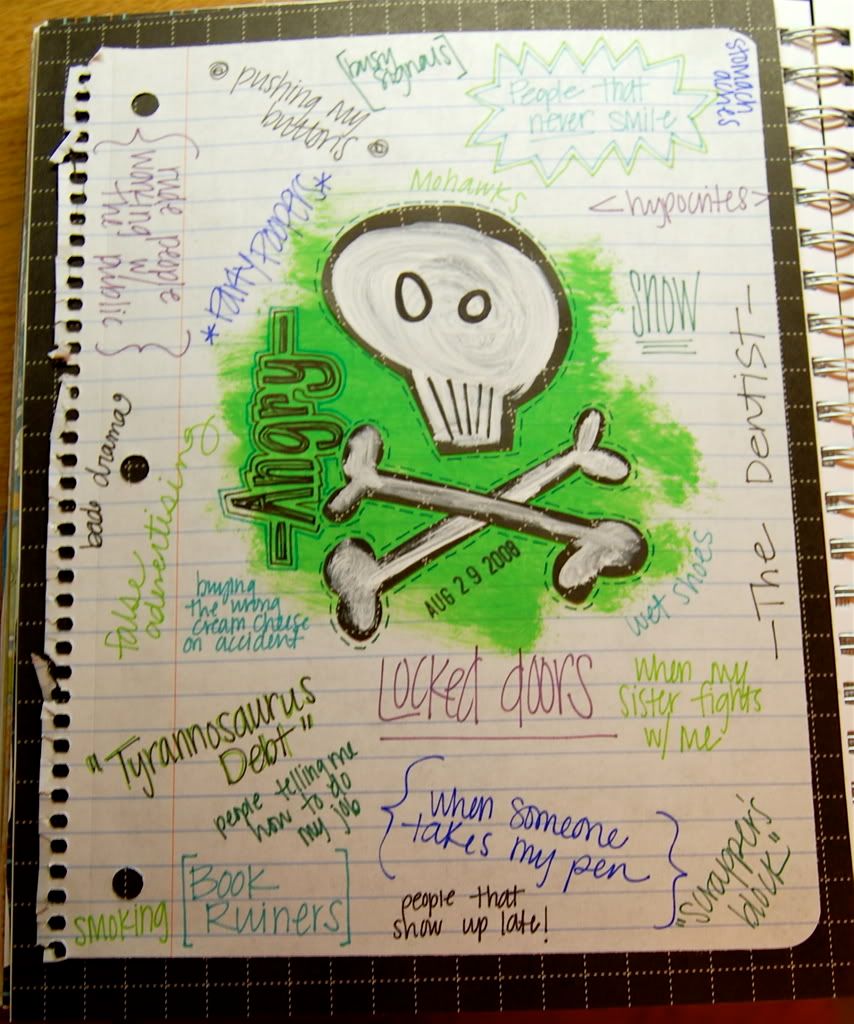 pushing my
buttons
People that
never smile
stomach
aches
rude people
working w/
the public
*Party Poopers*
Mohawks
<hypocrites>
snow
-The Dentist-
-Angry-
drama
false
advertising
buying
the wrong
cream cheese
on accident
AUG 29 2008
wet shoes
Locked doors
when my
sister fights
w/ me
"Tyrannosaurus
Debt"
people telling me
how to do
my job
{when someone
takes my pen}
"scrapper's
block"
smoking
[Book
Ruiners]
people that
show up late!